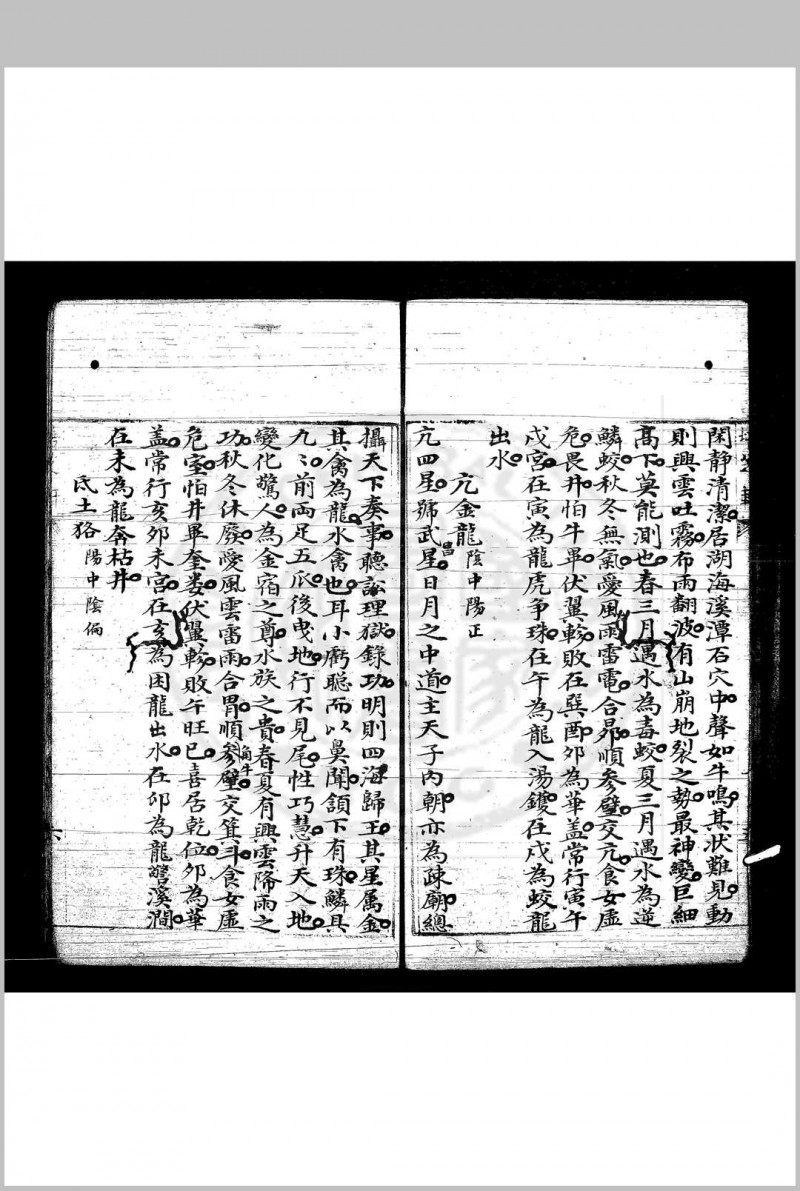 閑静清潔居湖海溪潭石穴中聲如牛鳴其狀難見動
則興雲吐霧布雨翻波有山崩地裂之勢最神變巨細
髙下莫能測也春三月遇水為毒蛟夏三月遇水為逆
鱗蛟秋冬無氣愛風雨雷電合昴順參壁交亢食女虛
危畏井怕牛畢伏翼軫敗在巽酉夘為華盖常行寅午
戌宮在寅為龍虎争珠在午為龍入湯鑊在戌為蛟龍
出水
亢金龍陰中陽正
亢四星號武昌星日月之中道主天子内朝亦為疎廟總
攝天下奏事聽訟理獄錄功明則四海歸王其星属金
其禽為龍水禽也耳小虧聪而以鼻聞頷下有珠鱗具
九〻前両足五爪後曳地行不見尾性巧慧升天入地
變化驚人為金宿之尊水族之貴春夏有興雲降雨之
功秋冬休廢愛風雲雷雨合胃順參壁交箕斗食女虛
角牛
危室怕井畢奎娄伏翼軫敗午旺巳喜居乾位夘為華
盖常行亥夘未宮在亥為困龍出水在卯為龍驚溪澗
在未為龍奔枯井
氐土狢陽中陰偏